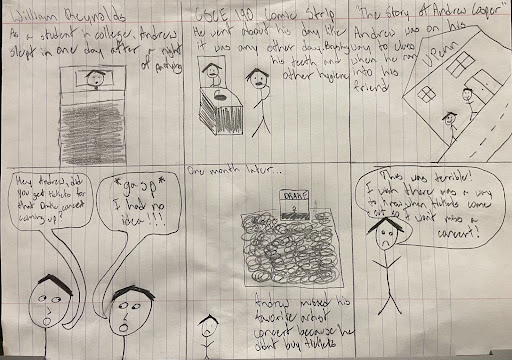 William Reynolds
CSCE 190 Comic Strip
"The Story of Andrew Casper"
As a student in college, Andrew
slept in one day after a night
of partying
He went about his day like
it was any other day. Brushing
his teeth and
other hygiene
Andrew was on his
way to class
when he ran
into his
friend
UPenn
Hey Andrew, did
you get tickets for
that Drake concert
coming up?
*gasp*
I had no
idea!!!
One month later...
DRAKE
Andrew missed his
favorite artist
concert because he
didnt buy tickets
This was terrible!
I wish there was a way
to know when tickets come
out so I wont miss a
concert!